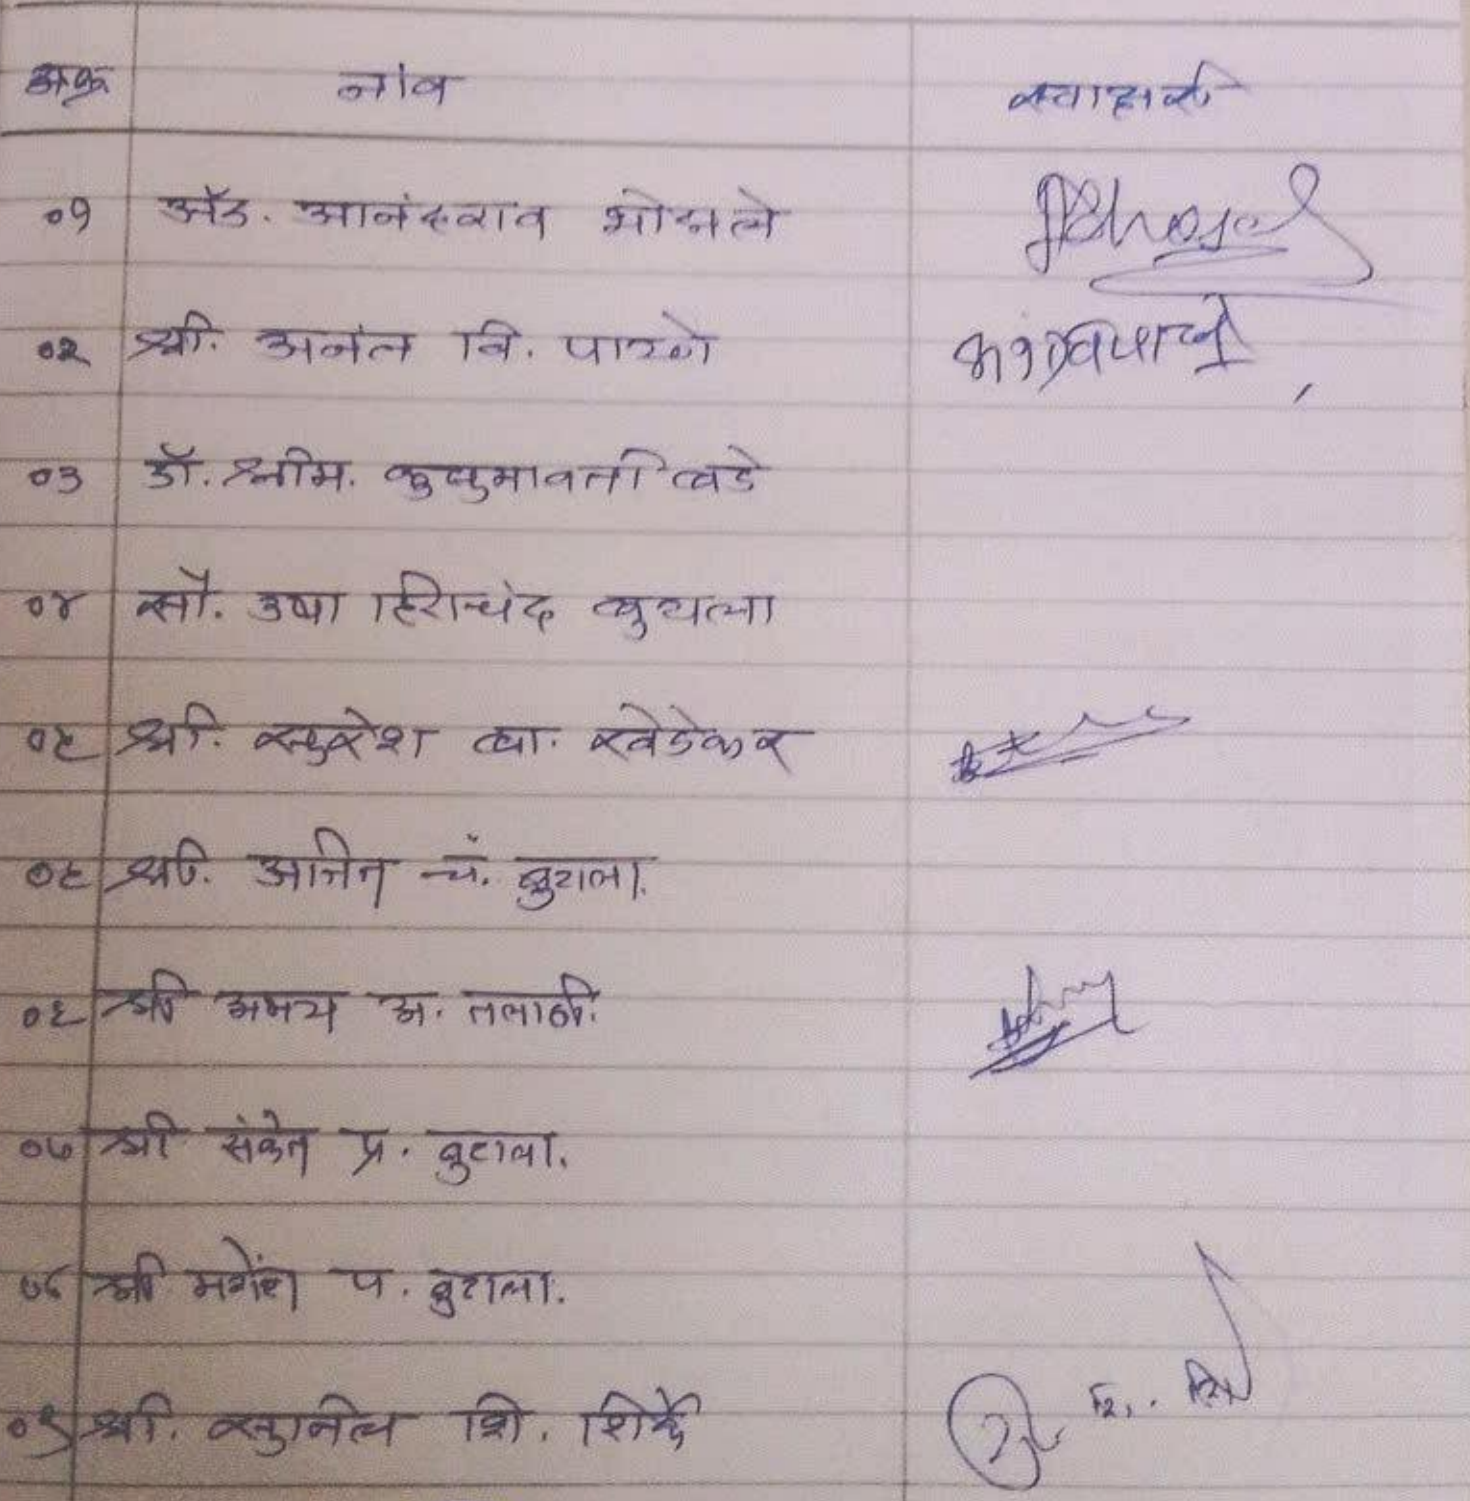 अ.क्र नांव स्वाक्षरी
०१ अॅड. आनंदराव भोसले
०२ श्री. अनंत वि. पारगे
०३ डॉ. श्रीम. कुसुमावती बडे
०४ सौ. उषा हिराचंद बुटाला
०५ श्री. सुरेश बा. खेडेकर
०६ श्री. अजित चं. बुटाला.
०६ श्री अभय अ. तलाठी.
०७ श्री संकेत प्र. बुटाला.
०८ श्री मंगेश प. बुटाला.
०९ श्री. सुनिल शि. शिर्के